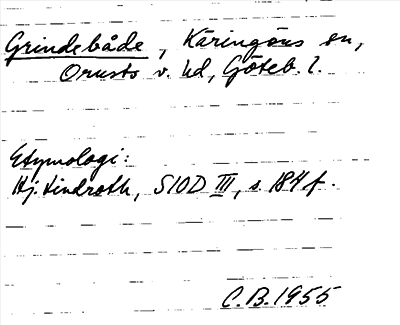 Grindebåde, Käringöns sn,
Orusts v. hd, Göteb. l.
Etymologi:
Hj. Lindroth, SIOD III, s. 184 f.
C.B. 1955